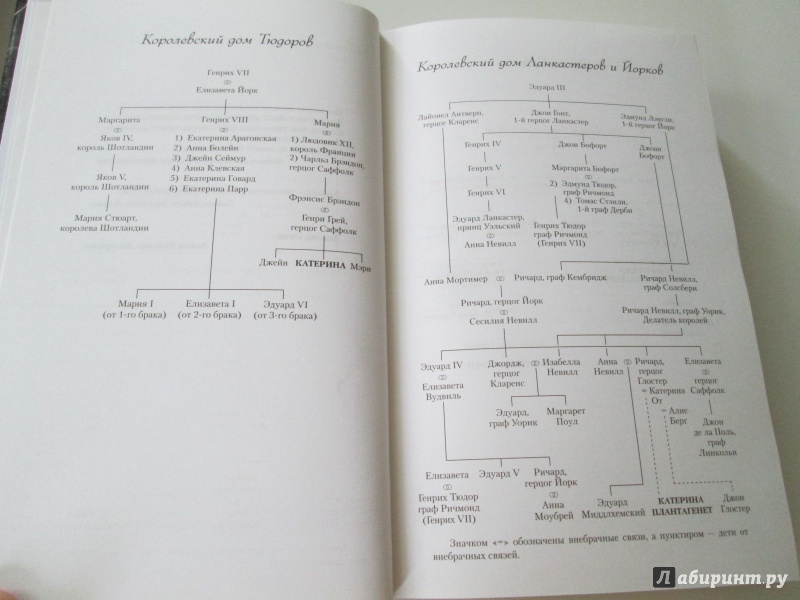 Королевский дом Тюдоров
Генрих VII
Елизавета Йорк
Маргарита
Яков IV,
король Шотландии
Яков V,
король Шотландии
Мария Стюарт,
королева Шотландии
Генрих VIII
1) Екатерина Арагонская
2) Анна Болейн
3) Джейн Сеймур
4) Анна Клевская
5) Екатерина Говард
6) Екатерина Парр
Мария
1) Людовик XII,
король Франции
2) Чарльз Брэндон,
герцог Саффолк
Фрэнсис Брэндон
Генри Грей,
герцог Саффолк
Джейн КАТЕРИНА Мэри
Мария I
(от 1-го брака)
Елизавета I
(от 2-го брака)
Эдуард VI
(от 3-го брака)
Королевский дом Ланкастеров и Йорков
Эдуард III
Лайонел Антверп,
герцог Кларенс
Джон Гонт,
1-й герцог Ланкастер
Эдмунд Лэнгли,
1-й герцог Йорк
Генрих IV
Генрих V
Генрих VI
Эдуард Ланкастер,
принц Уэльский
Анна Невилл
Джон Бофорт
Маргарита Бофорт
2) Эдмунд Тюдор,
граф Ричмонд
4) Томас Стэнли,
1-й граф Дерби
Генрих Тюдор
граф Ричмонд
(Генрих VII)
Джоан
Бофорт
Анна Мортимер
Ричард, граф Кембридж
Ричард Невилл,
граф Солсбери
Ричард, герцог Йорк
Сесилия Невилл
Ричард Невилл, граф Уорик,
Делатель королей
Эдуард IV
Елизавета
Вудвиль
Джордж,
герцог
Кларенс
Изабелла
Невилл
Анна
Невилл
Ричард,
герцог
Глостер
= Катерина
От
= Алис
Берг
Елизавета
герцог
Саффолк
Джон
де ла Поль,
граф
Линкольн
Эдуард,
граф Уорик
Маргарет
Поул
Елизавета
Генрих Тюдор
граф Ричмонд
(Генрих VII)
Эдуард V
Ричард,
герцог Йорк
Анна
Моубрей
Эдуард
Миддлхемский
КАТЕРИНА
ПЛАНТАГЕНЕТ
Джон
Глостер
Значком «=» обозначены внебрачные связи, а пунктиром – дети от
внебрачных связей.
Лабиринт.ру